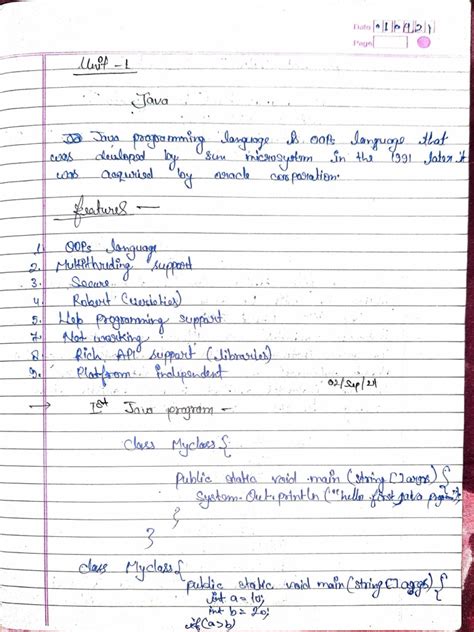 Date 01 09 21
Page
Unit - 1
Java
Java programming language is OOPs language that
was devloped by sun microsystem in the 1991 later it
was acquried by oracle corporation.
features —
1. OOPs language
2. Multithrding support
3. Secure
4. Robert
5. Web programming support
7. Not working
8. Rich API support (libraries)
9. Platfrom independent
02/Sep/21
→ Ist Java program -
Class Myclass {
public static void main (string [] args) {
System.Out.println ("hello first java program");
}
}
class Myclass {
public static void main (string [] args) {
int a = 10;
int b = 20;
if (a>b)